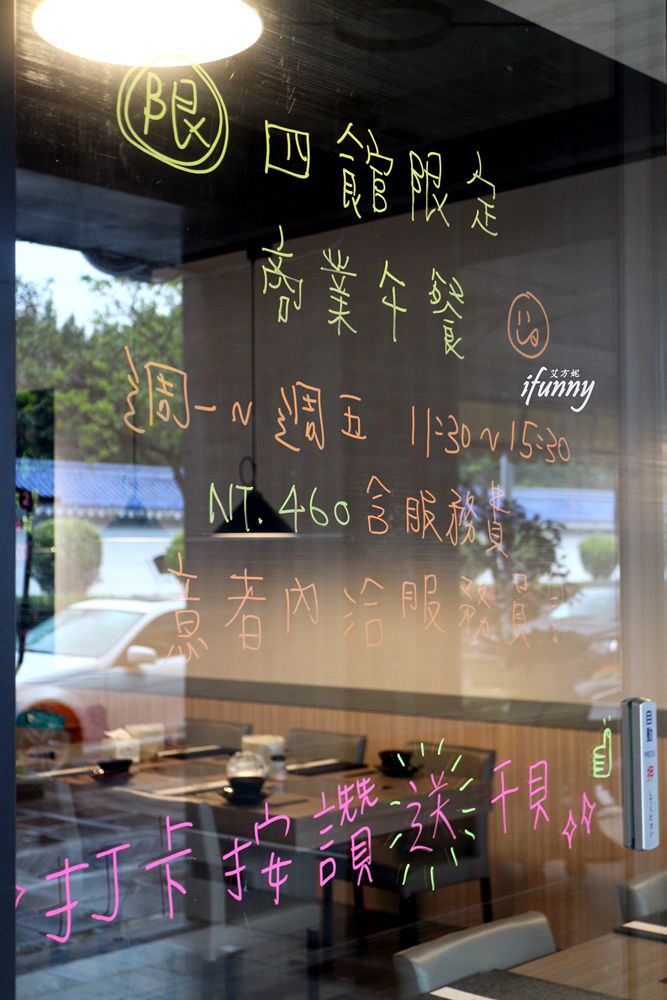 限
四館限定
商業午餐
艾方妮
ifunny
週一~週五 11:30~15:30
NT.460含服務費
意者內洽服務員!
打卡按讚送